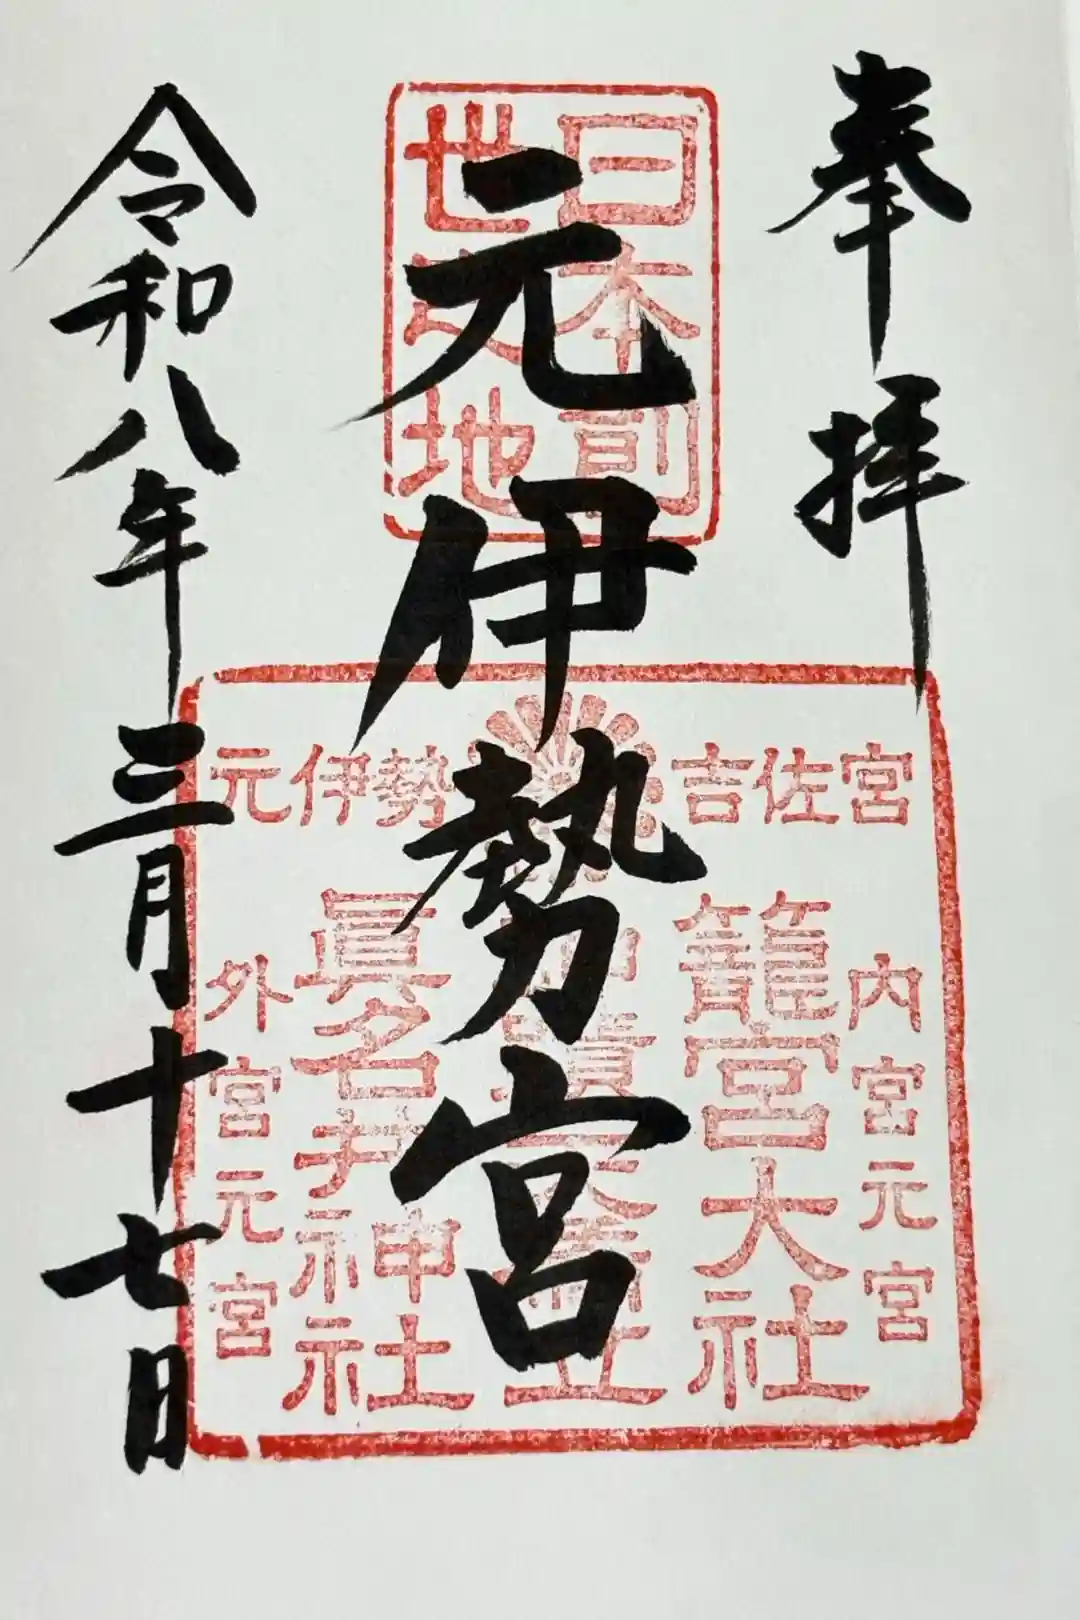 奉拝
元伊勢宮
令和八年三月十七日
日本
世
地
元伊勢
吉佐宮
内宮元宮
籠宮大社
眞名井神社
外宮元宮